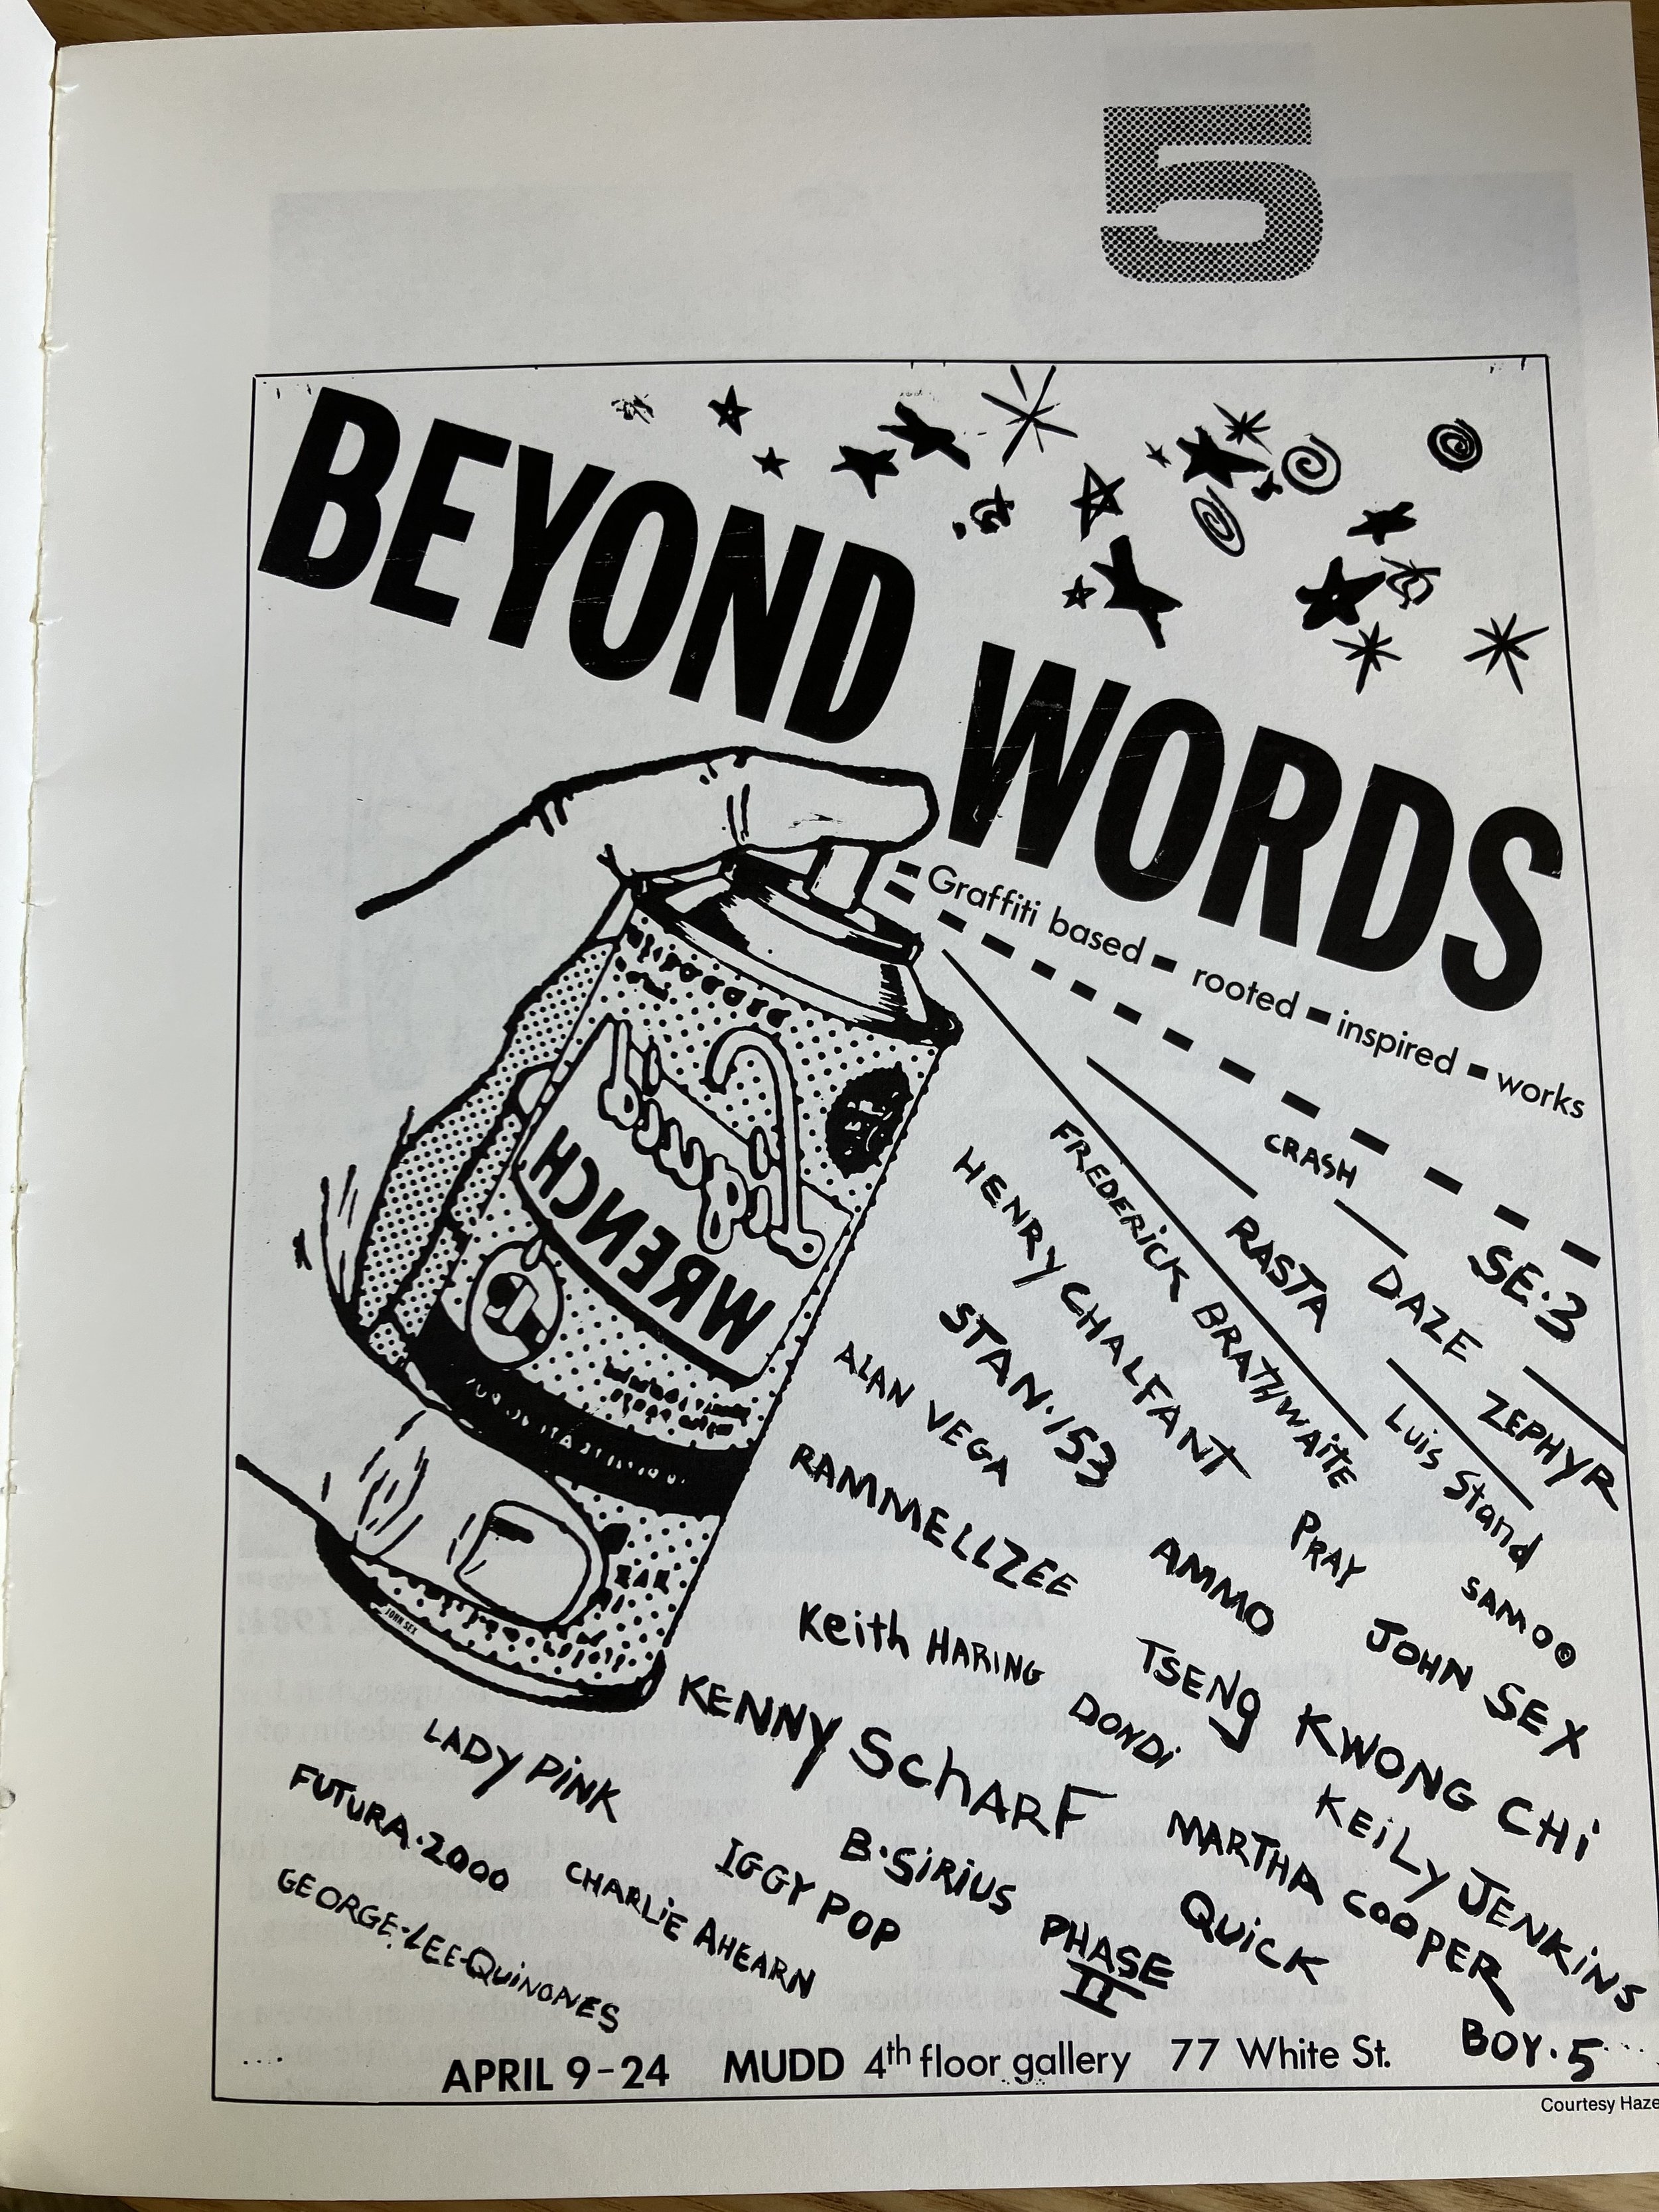 5
BEYOND WORDS
Graffiti based - rooted - inspired - works
CRASH
SE·3
RASTA
DAZE
ZEPHYR
FREDERiCK BRATHWAiTE
HENRY CHALFANT
Luis Stand
STAN·153
ALAN VEGA
PRAY
SAMO©
RAMMELLZEE
AMMO
JOHN SEX
Keith HARiNG
TSENg KWONG CHi
DONDi
KENNY ScHARF
KEiLy JENKiNS
LADY PiNK
MARTHA COOPER
FUTURA·2000
B·SiRiUS
IGGY POP
QUiCK
CHARLiE AHEARN
PHASE II
GEORGE-LEE-QuiNONES
BOY·5
WRENCH
JOHN SEX
APRIL 9-24 MUDD 4th floor gallery 77 White St.
Courtesy Haze